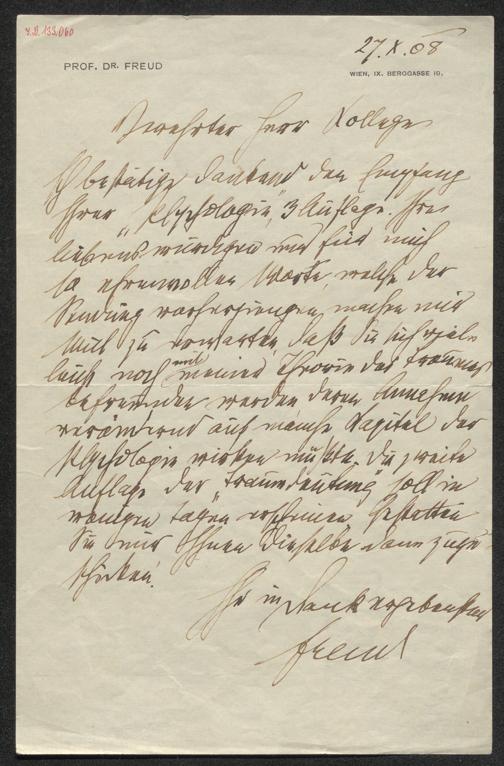 I.N. 133.060
27. X. 08
PROF. DR. FREUD
WIEN, IX. BERGGASSE 19.
Verehrter Herr Kollege
Ich bestätige dankend den Empfang
Ihrer „Psychologie“, 3 Auflage. Ihre
liebenswürdigen und für mich
so ehrenvollen Worte, welche der
Sendung vorhergiengen, machen mir
Mut zu erwarten, daß Sie sich viel-
leicht noch mit meiner Theorie des Traumes
befreunden werden, deren Annahme
verändernd auf manche Kapitel der
Psychologie wirken müßte. Die zweite
Auflage der „Traumdeutung“ soll in
wenigen Tagen erscheinen. Gestatten
Sie mir Ihnen dieselbe dann zuzu-
schicken.
Ihr in Dank ergebenster
Freud